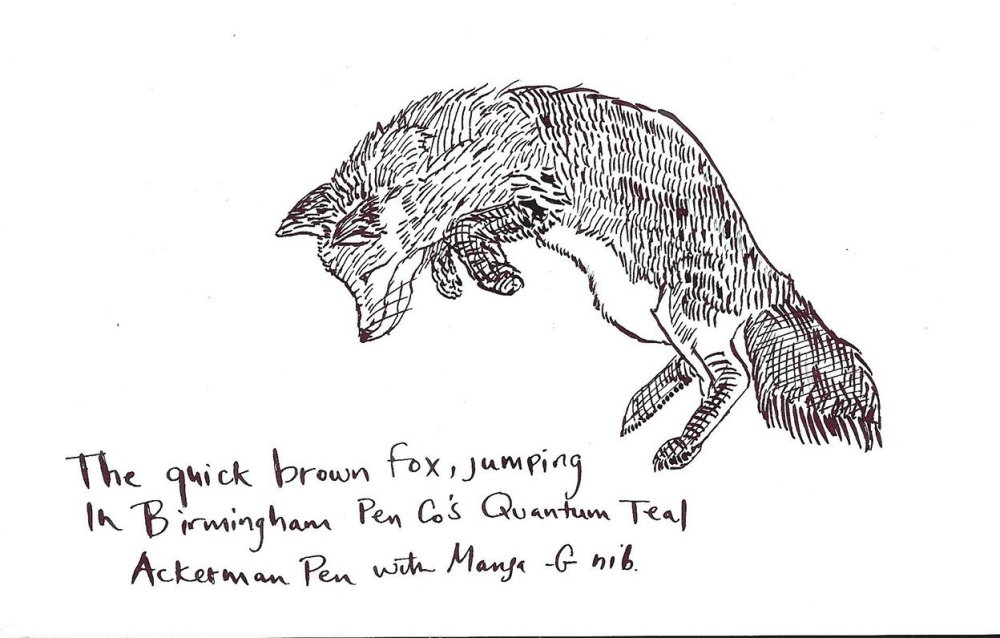 The quick brown fox, jumping
In Birmingham Pen Co's Quantum Teal
Ackerman Pen with Manga -G nib.